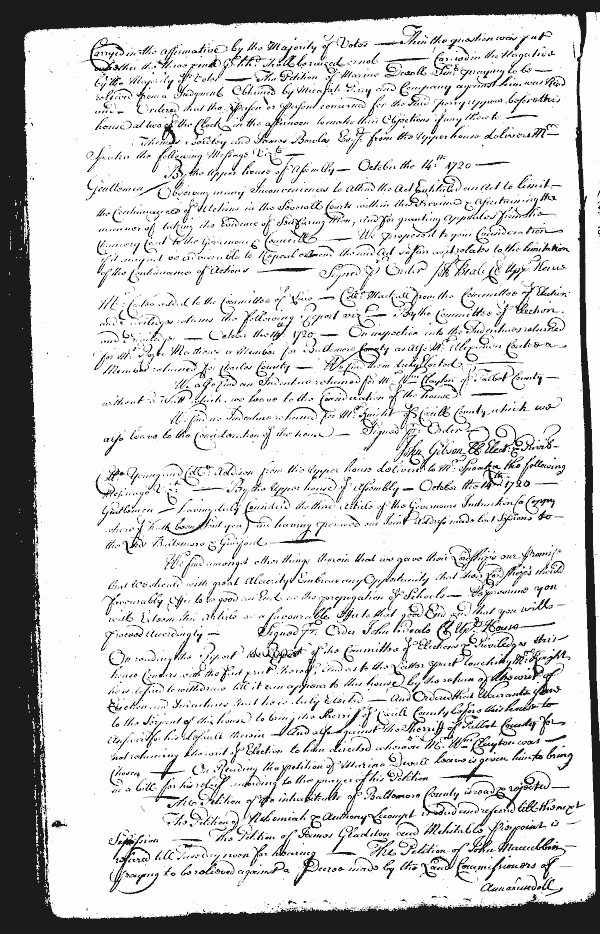 Carryed in the affirmative by the Majority of Votes — Then the question was put
whether the three pence shall be raised or not — Carried in the Negative
by the Majority of Votes — The Petition of Marine Devall praying to be
relieved from a Judgment Obtained by and Company against him was Read
and Ordered that the person or persons concerned for the said Company appear before this
house at two of the Clock in the afternoon to make their Objections if any there be
Thomas and James Bowles Esqrs. from the upper house delivers Mr.
Speaker the following Message Vizt.
By the upper house of Assembly — October the 14th 1720 —
Gentlemen Observing many Inconveniences to Attend the Act Entituled an Act to limit
the Continuance of Actions in the Severall Courts within this Province Ascertaining the
manner of taking the Evidence of Seafaring Men, and for granting Appeales from the
Chancery Court to the Governour & Councill — We propose to your Consideration
if it may not be convenient to Repeal the said Act so far as it relates to the limitation
of the Continuance of Actions — Signed p. Order Jno. Beale Cl. Upp. House
the Committee of Laws — Coll. Mackall from the Committee of Election
and Priviledges returns the following Report Vizt. — By the Committee of Election
and Priviledges — October the 14th 1720 — On inspection into the Indentures returned
for Mr. Roger Mathews a Member for Baltemore County as also Mr. Alexander Contee a
Member returned for Charles County — We find them duly Elected —
We also find an Indenture returned for Mr. Wm. Clayton of Talbot County —
without a Writ which we leave to the Consideration of the house —
We find no Indenture returned for Mr. Knight of Cecill County, which we
also leave to the Consideration of the house — Signed p. Order
John Gibson Cl. Elect. & Privil.
Mr. Young and Coll. Addison from the upper house delivers to Mr. Speaker the following
Message Vizt. — By the Upper house of Assembly — October the 14th 1720 —
Gentlemen — having duly Considered the third Article of the Governours Instructions (a Copy
whereof hath been sent you) and having perused our Joint Address made last Sessions to
the Lord Baltemore & Guilford —
We find amongst other things therein that we gave their Lordships our Promise
that we should with great Alacrity Embrace any Opportunity that their Lordships should
favourably Offer to so good an End as the propagation of Schools — So presume you
will Esteem this Article as a favourable Offer to that good End and that you will
proceed Accordingly — Signed p. Order John Beale Cl. Upp. House
On reading the Report of the Committee of Elections & Priviledges this
house Concurs with the first part thereof; and as to the Latter part touching Mr. Knight
he is desired to withdraw till it can appear to this house by the return of the writ of
Election and Indentures that he is duly Elected — And Ordered that Warrants Issue
to the Serjeant of this house to bring the Sherriff of Cecill County before this house to
Answer his default therein — And also against the Sherriff of Talbot County for
not returning the writ of Election to him directed whereon Mr. Wm. Clayton was
Chosen — On Reading the petition of Marine Devall Leave is given him to bring
in a bill for his relief according to the prayer of his Petition —
The Petition of the inhabitants of Baltemore County is read & rejected —
The Petition of Nehemiah & Anthony Lecompt is read and referrd till the next
Sesssion — The Petition of James Gladston and Mehitable Pierpoint is
referred till Tuesday noon for hearing — The Petition of John
Praying to be relieved against a Decree made by the Land Commissioners of
Annarundell